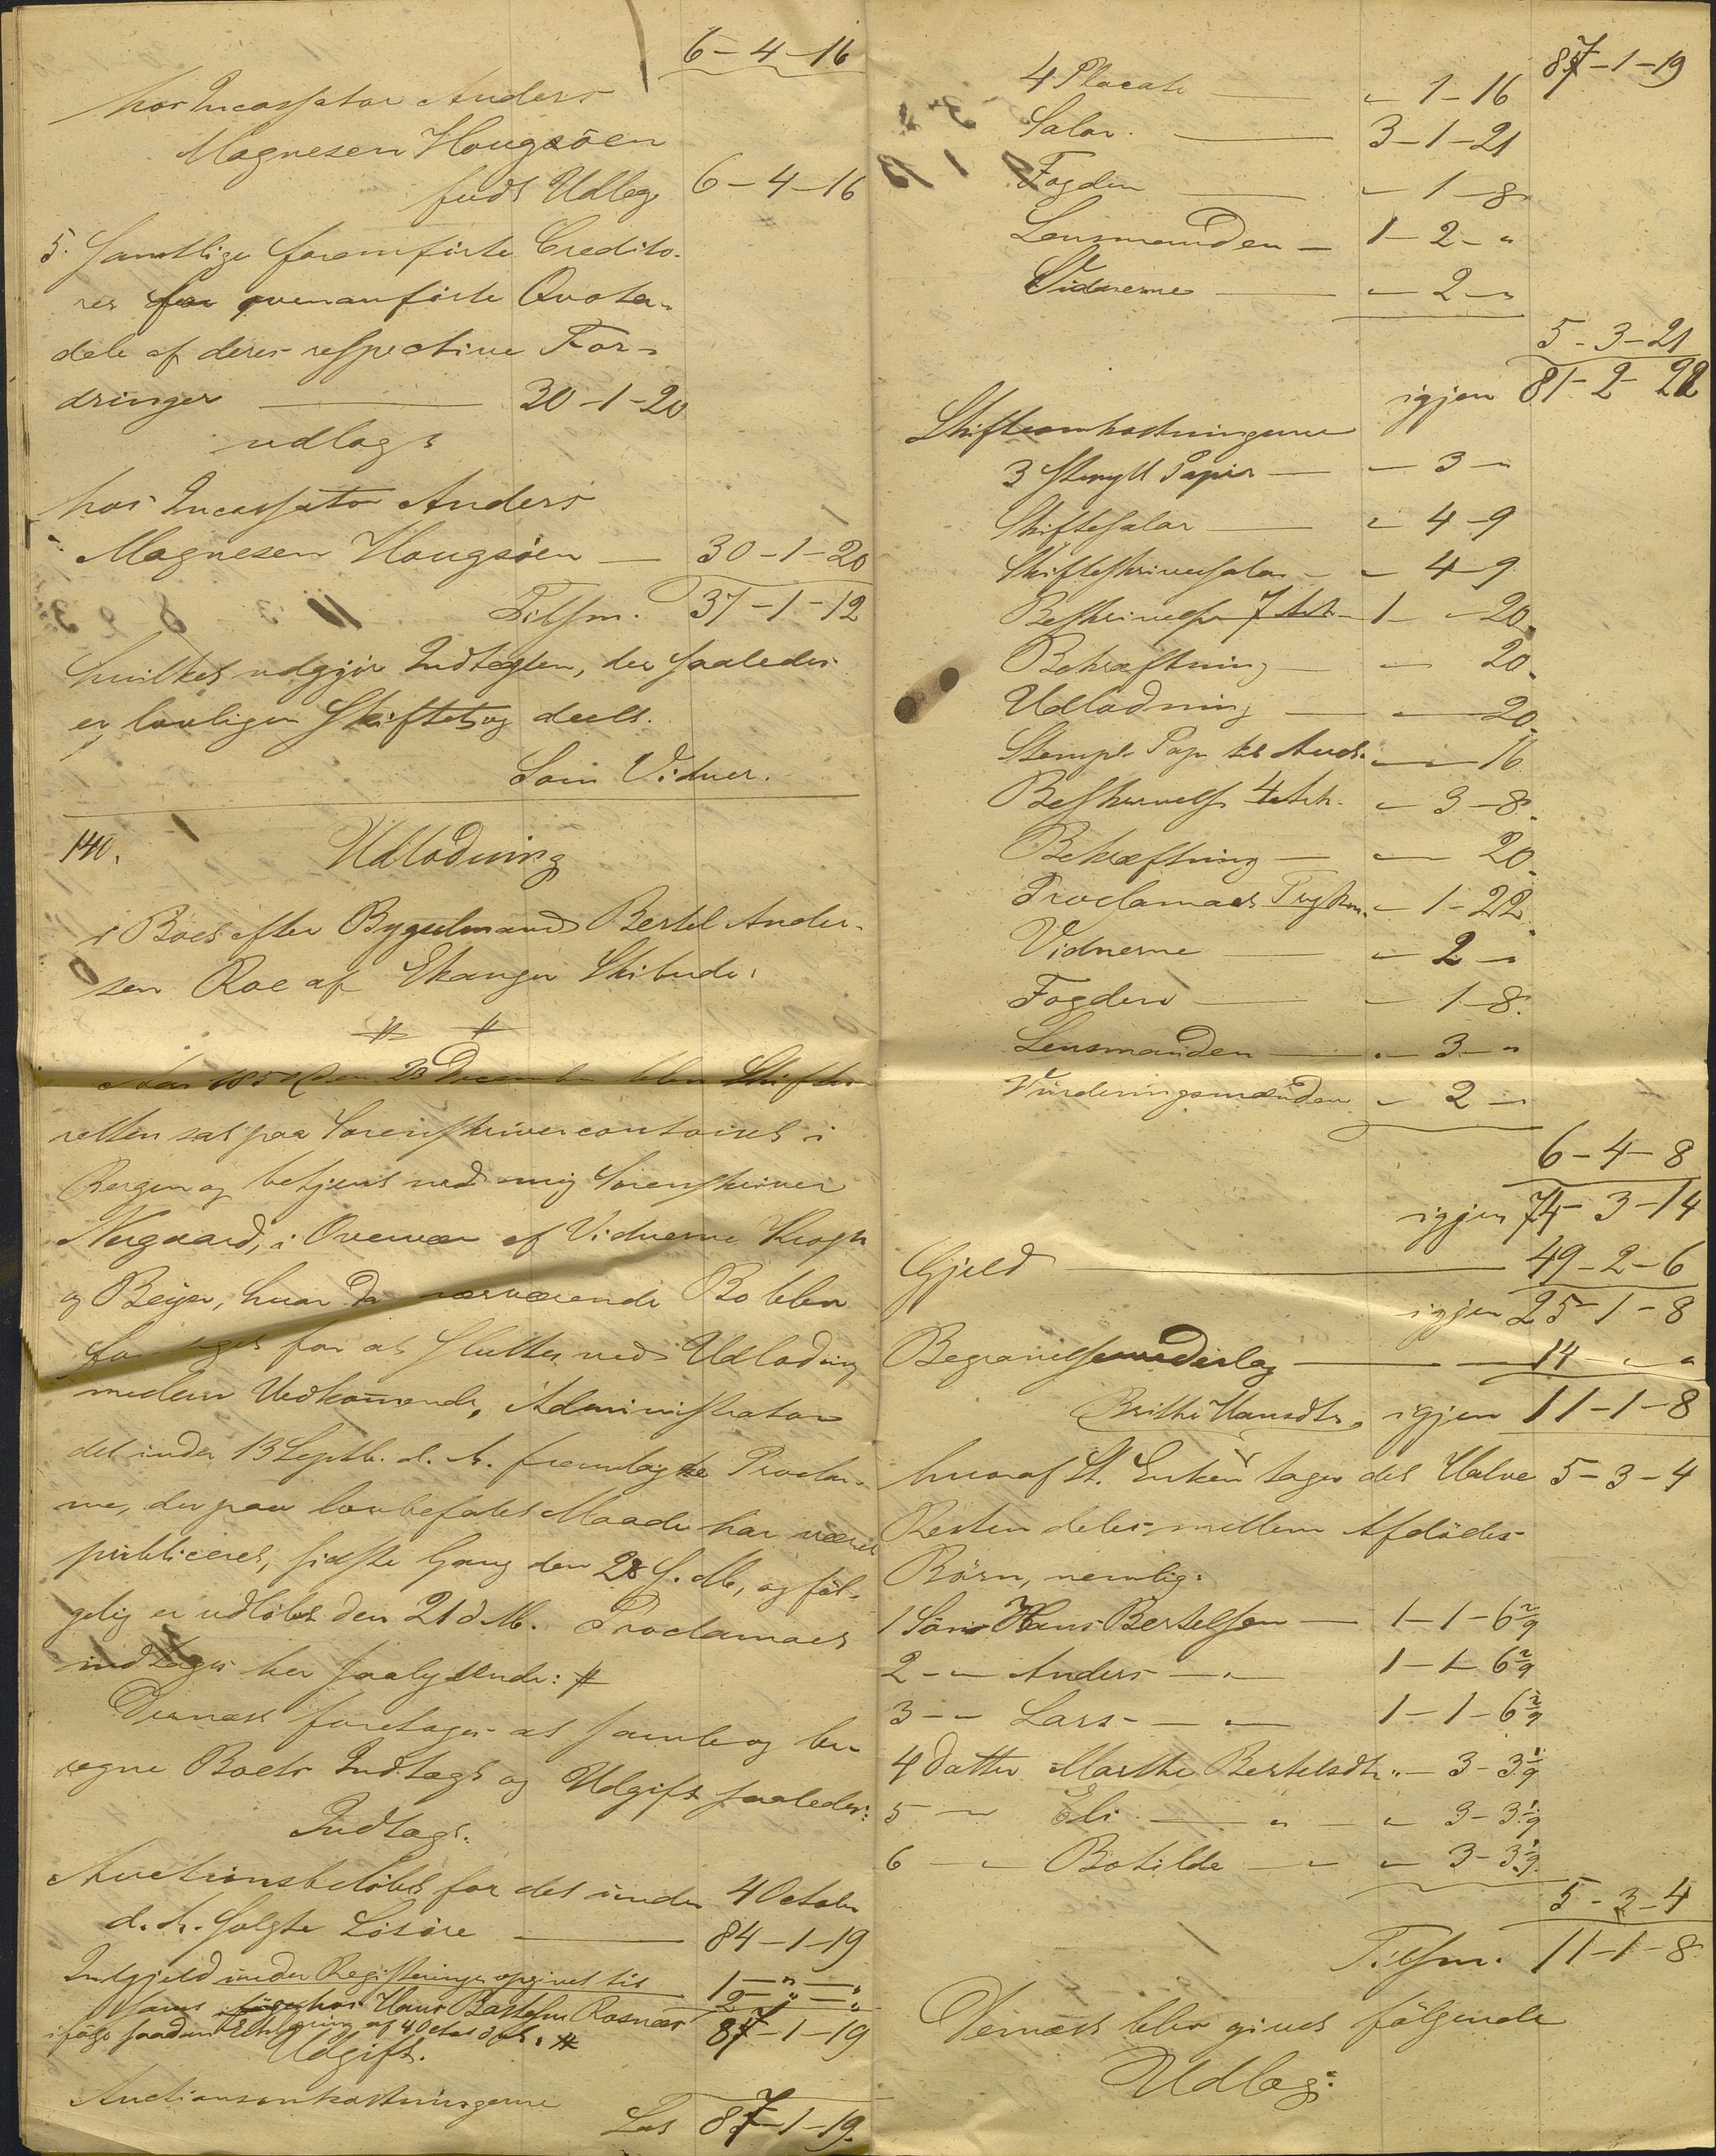 6-4-16
hos Incassator Anders
Magnesen Hougsöen
fuldt Udlæg 6-4-16
5. Samtlige foranførte Credito-
res for ovenanførte Qvota-
dele af deres respective For-
dringer — 30-1-20
udlagt
hos Incassator Anders
Magnesen Hougsöen — 30-1-20
Tilsm. 37-1-12
hvilket udgjør Indtægten, der saaledes
er lovligen skiftet og deelt.
Som Vidner.
140. Udlodning
i Boet efter Bygselmand Bertel Ander-
sen Roe af Ekanger Skibrede.
Aar 185 den 23 December blev Skifte-
retten sat paa Sorenskrivercontoiret i
Bergen og betjent med mig Sorenskriver
Nergaard, i Overvær af Vidnerne Krogh
og Beyer, hvor da nærværende Bo blev
foretaget for at sluttes ved Udlodning
mellem Vedkommende. Administrator
det under 13 Septb. d. A. fremlagde Procla-
ma, der paa lovbefalet Maade har været
publiceret, sidste Gang den 28 f. M., og føl-
gelig er udløbet den 21 d. M. Proclamaet
indtages her saalydende: #
Dernæst foretages at samle og be-
regne Boets Indtægt og Udgift saaledes:
Indtægt.
Auctionsbeløbet for det under 4 October
d. A. solgte Løsøre — 84-1-19
Indgjeld under Registeringen opgivet til 1 - " - "
Hans Bertelsen Rosnæs 2 - " - "
ifølge saadan af 4 Octbr d. A. # 87-1-19
Udgift.
Auctionsomkostningerne
Lat 87-1-19.
87-1-19
4 Placate — " - 1-16
Salar. — 3-1-21
Fogden — " - 1-8
Lensmanden — 1-2- "
Vidnerne — " - 2 - "
5-3-21
igjen 81-2-22
Skifteomkostningerne
3 Stempl Papir — " - 3 - "
Skiftesalar — " 4-9
Skifteskriversalar — " - 4-9
Beskrivelse 7 Ark — 1 - " - 20
Bekræftning — " - 20
Udlodning — " - 20
Stempl. Pap til Auct. " - " - 16
Beskrivelse 4 Ark. " - 3-8
Bekræftning — " - 20
Proclamaets Trykn. " - 1-22
Vidnerne — " - 2 - "
Fogden — " - 1-8
Lensmanden — " - 3 - "
Vurderingsmænden " - 2 - "
6-4-8
igjen 74-3-14
Gjeld — 49-2-6
igjen 25-1-8
Begravelsesvederlag — 14 - " - "
igjen 11-1-8
Brithe Hansdtr.
hvoraf St. Enken tager det Halve 5-3-4
Resten deles mellem Afdødes
Børn, nemlig:
1 Søn Hans Bertelsen — 1-1-6 2/9
2 - " Anders — " 1-1-6 2/9
3 - " Lars — " 1-1-6 2/9
4 Datter Marthe Bertelsdtr. " - 3-3 1/9
5 - " Eli — " " - 3-3 1/9
6 - " Botilde — " " - 3-3 1/9
5-3-4
Tilsm. 11-1-8
Dernæst blev givet følgende
Udlæg: